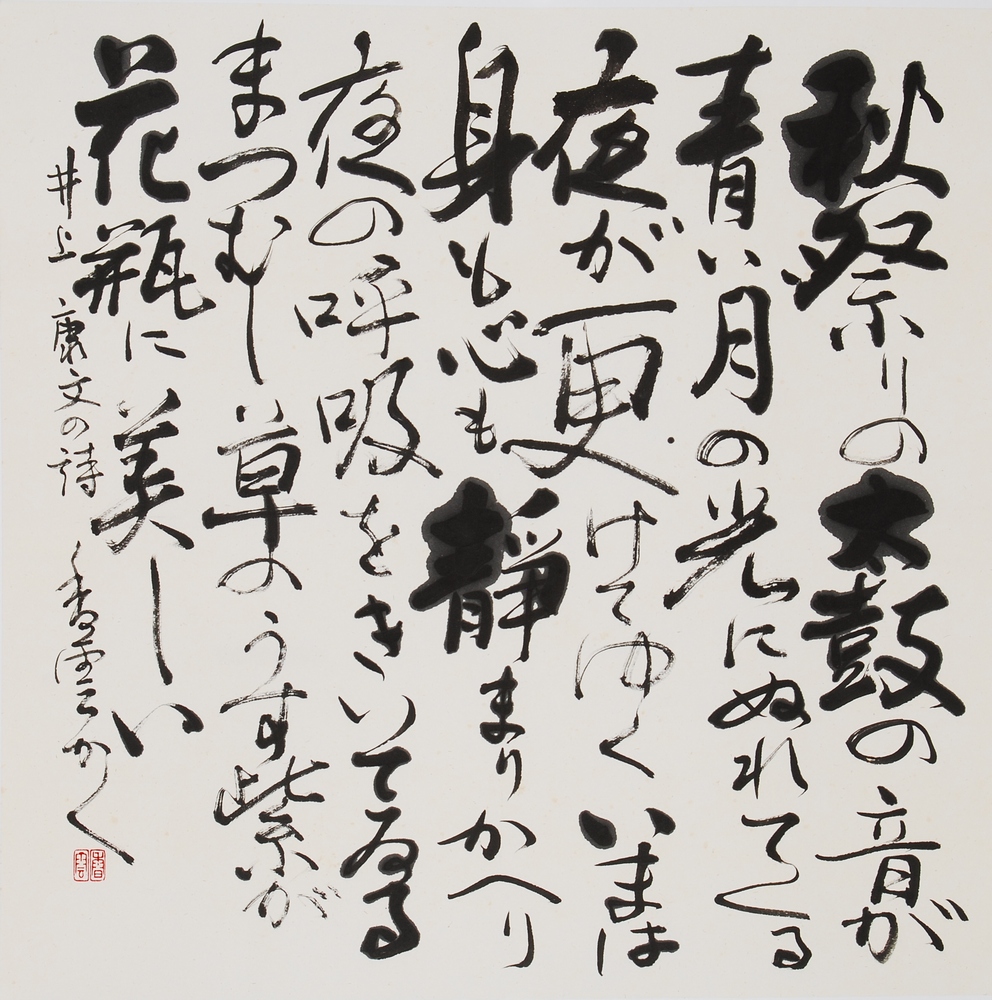 秋祭りの太鼓の音が
青い月の光にぬれてくる
夜が更けてゆくいまは
身も心も静まりかへり
夜の呼吸をきいてゐる
まつむし草のうす紫が
花瓶に美しい
井上康文の詩 香雲かく
香雲